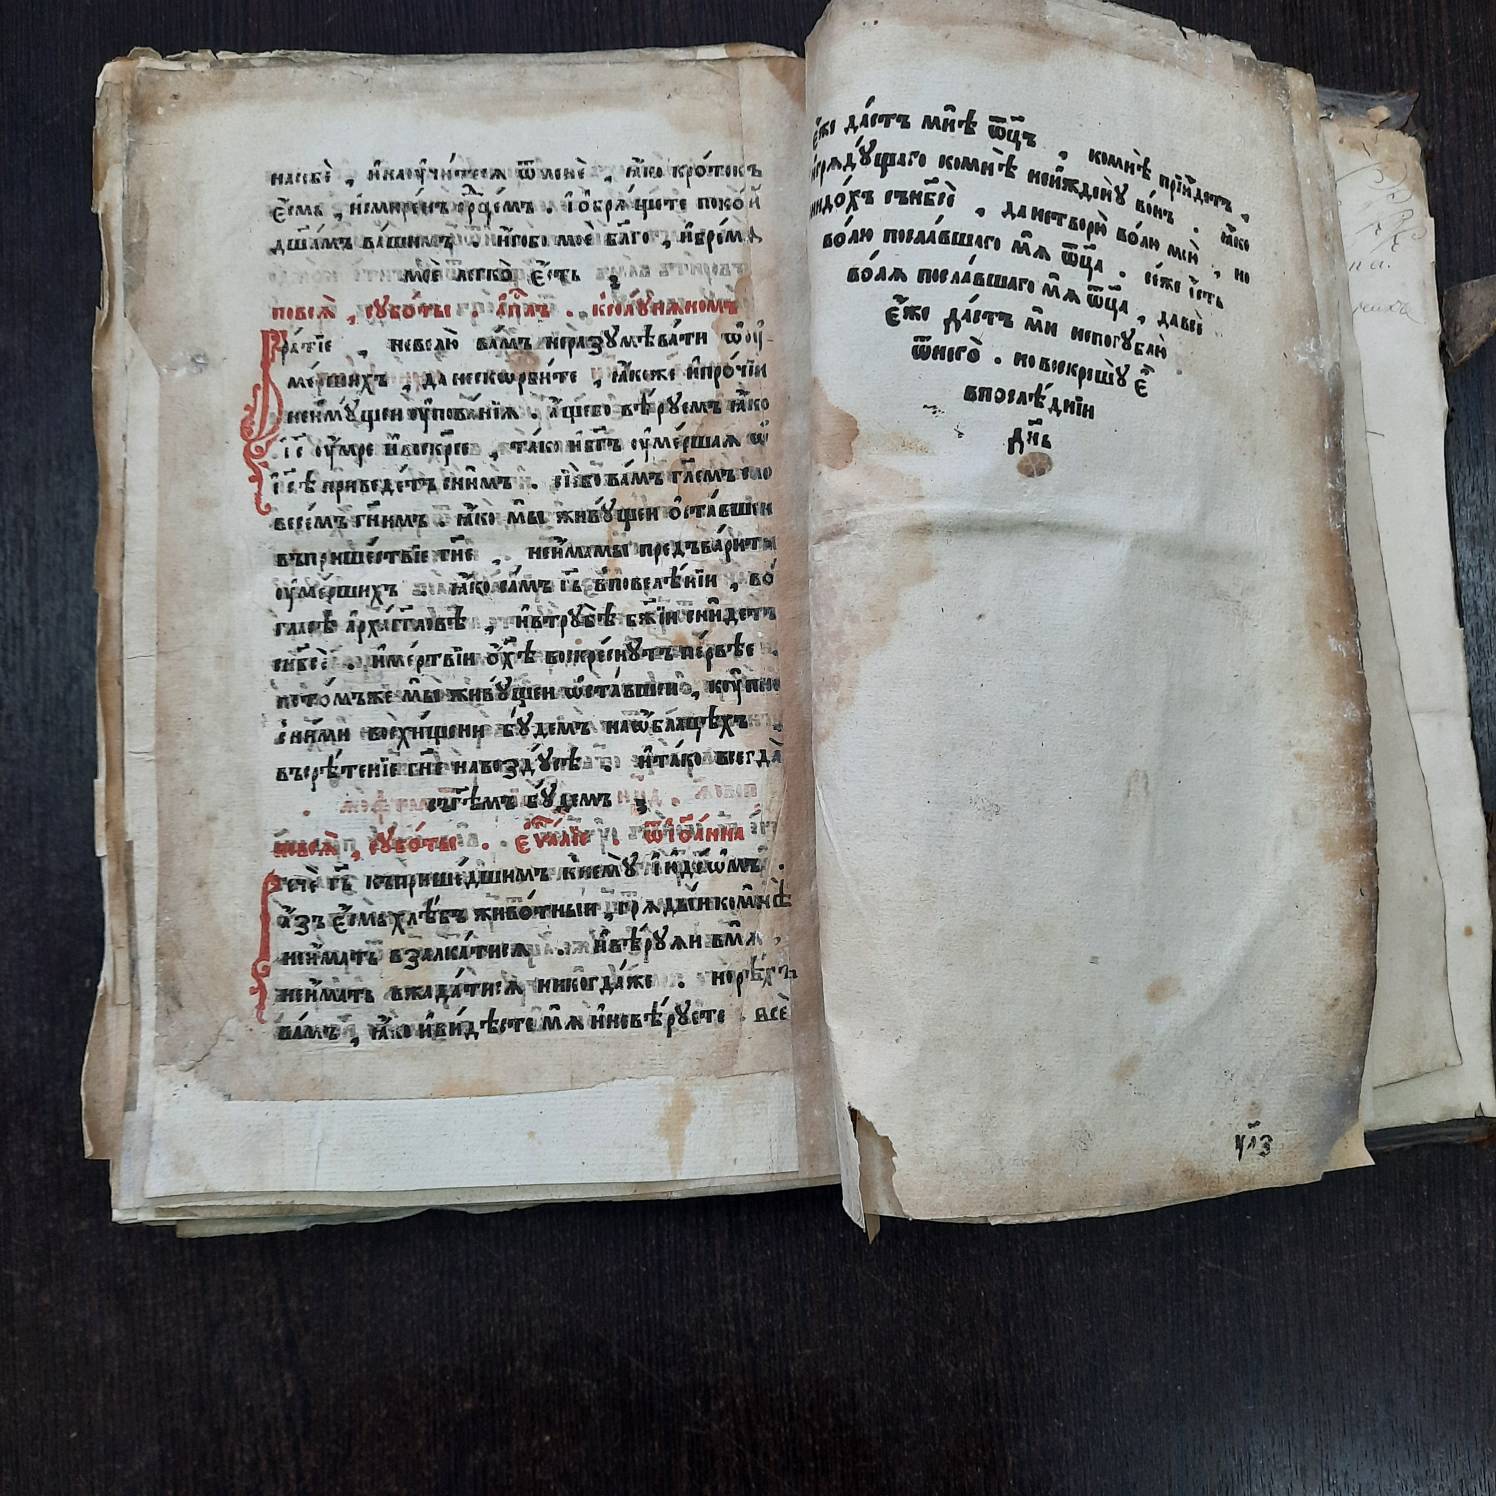 насебѐ , и҆ научи́тесѧ ѿ менѐ , ꙗ҆́ко кро́токъ
є҆́смь , и҆ смире́нъ срⷣцемъ . и҆ ѡ҆брѧ́щете поко́й
дш҃а́мъ ва́шимъ . и҆́гобо моѐ бл҃го , и҆ бре́мѧ
моѐ легко̀ є҆́сть
, сꙋбо́ты . а҆пⷭ҇лъ . ксолꙋ́нѧномъ
ра́тїе , невелю̀ ва́мъ неразꙋмѣ́вати ѡ҆ оу҆-
ме́ршихъ , да нескорби́те , ꙗ҆́коже и҆ про́чїи
неи҆мꙋ́щеи оу҆пова́нїѧ . а҆́щебо вѣ́рꙋемъ ꙗ҆́ко
і҆с҃ оу҆́мре и҆ воскр҃се , та́ко и҆ бг҃ъ оу҆ме́ршаѧ ѡ҆
і҆с҃ѣ приведе́тъ сни́мъ . сїе́бо ва́мъ гл҃емъ сло
весе́мъ гн҃имъ . ꙗ҆́ко мы̀ живꙋ́щеи ѡ҆ста́вшїи
въ прише́ствїе гн҃е , неи҆́мамы предъвари́ти
оу҆ме́ршихъ . ꙗ҆́ко са́мъ гь҃ вповелѣ́нїи , во́
гла́сѣ а҆рха́гг҃ловѣ , и҆ втрꙋбѣ̀ бж҃їи сни́детъ
снб҃сѐ . и҆ ме́ртвїи ѡ҆ хрⷭ҇тѣ̀ воскре́снꙋтъ пе́рвѣе .
пото́мъже мы̀ живꙋ́щеи ѡ҆ста́вшеи , кꙋ́пно
сни́ми восхище́ни бꙋ́демъ на ѡ҆́блацѣхъ ,
въ срѣ́тенїе гн҃е на воздꙋ́сѣ . и҆ та́ко всегда̀
съ гд҇емъ бꙋ́демъ
, сꙋбо́ты . є҆ѵⷢ҇а́лїе . ѿ і҆ѡа́нна
речѐ гь҃ къ прише́дшимъ к нему̀ і҆ꙋде́ѡмъ .
а҆́зъ є҆́смь хлѣ́бъ живо́тныи , грѧды́и ко мнѣ̀
неи҆́мать взалка́тисѧ . и҆ вѣ́рꙋѧи в мѧ̀ ,
неи҆́мать вжада́тисѧ никогда́же . но рѣ́хъ
ва́мъ , ꙗ҆́ко и҆ ви́дѣсте мѧ̀ и҆ невѣ́рꙋете . всѐ
є҆́же да́стъ мнѣ̀ ѻ҆ц҃ъ , ко мнѣ̀ прїи́детъ ,
грѧдꙋ́щаго ко мнѣ̀ неи҆жденꙋ̀ во́нъ . ꙗ҆́ко
снидо́хъ съ нб҃сѐ , да нетворю̀ во́лю мою̀ , но
во́лю посла́вшаго мѧ̀ ѻ҆ц҃а̀ . се́же є҆́сть
во́лѧ посла́вшаго мѧ̀ ѻ҆ц҃а̀ , да всѐ
є҆́же да́стъ мѝ непогꙋблю̀
ѿ него̀ . но воскрешꙋ̀ є҆̀
впослѣ́днїи
дн҃ь